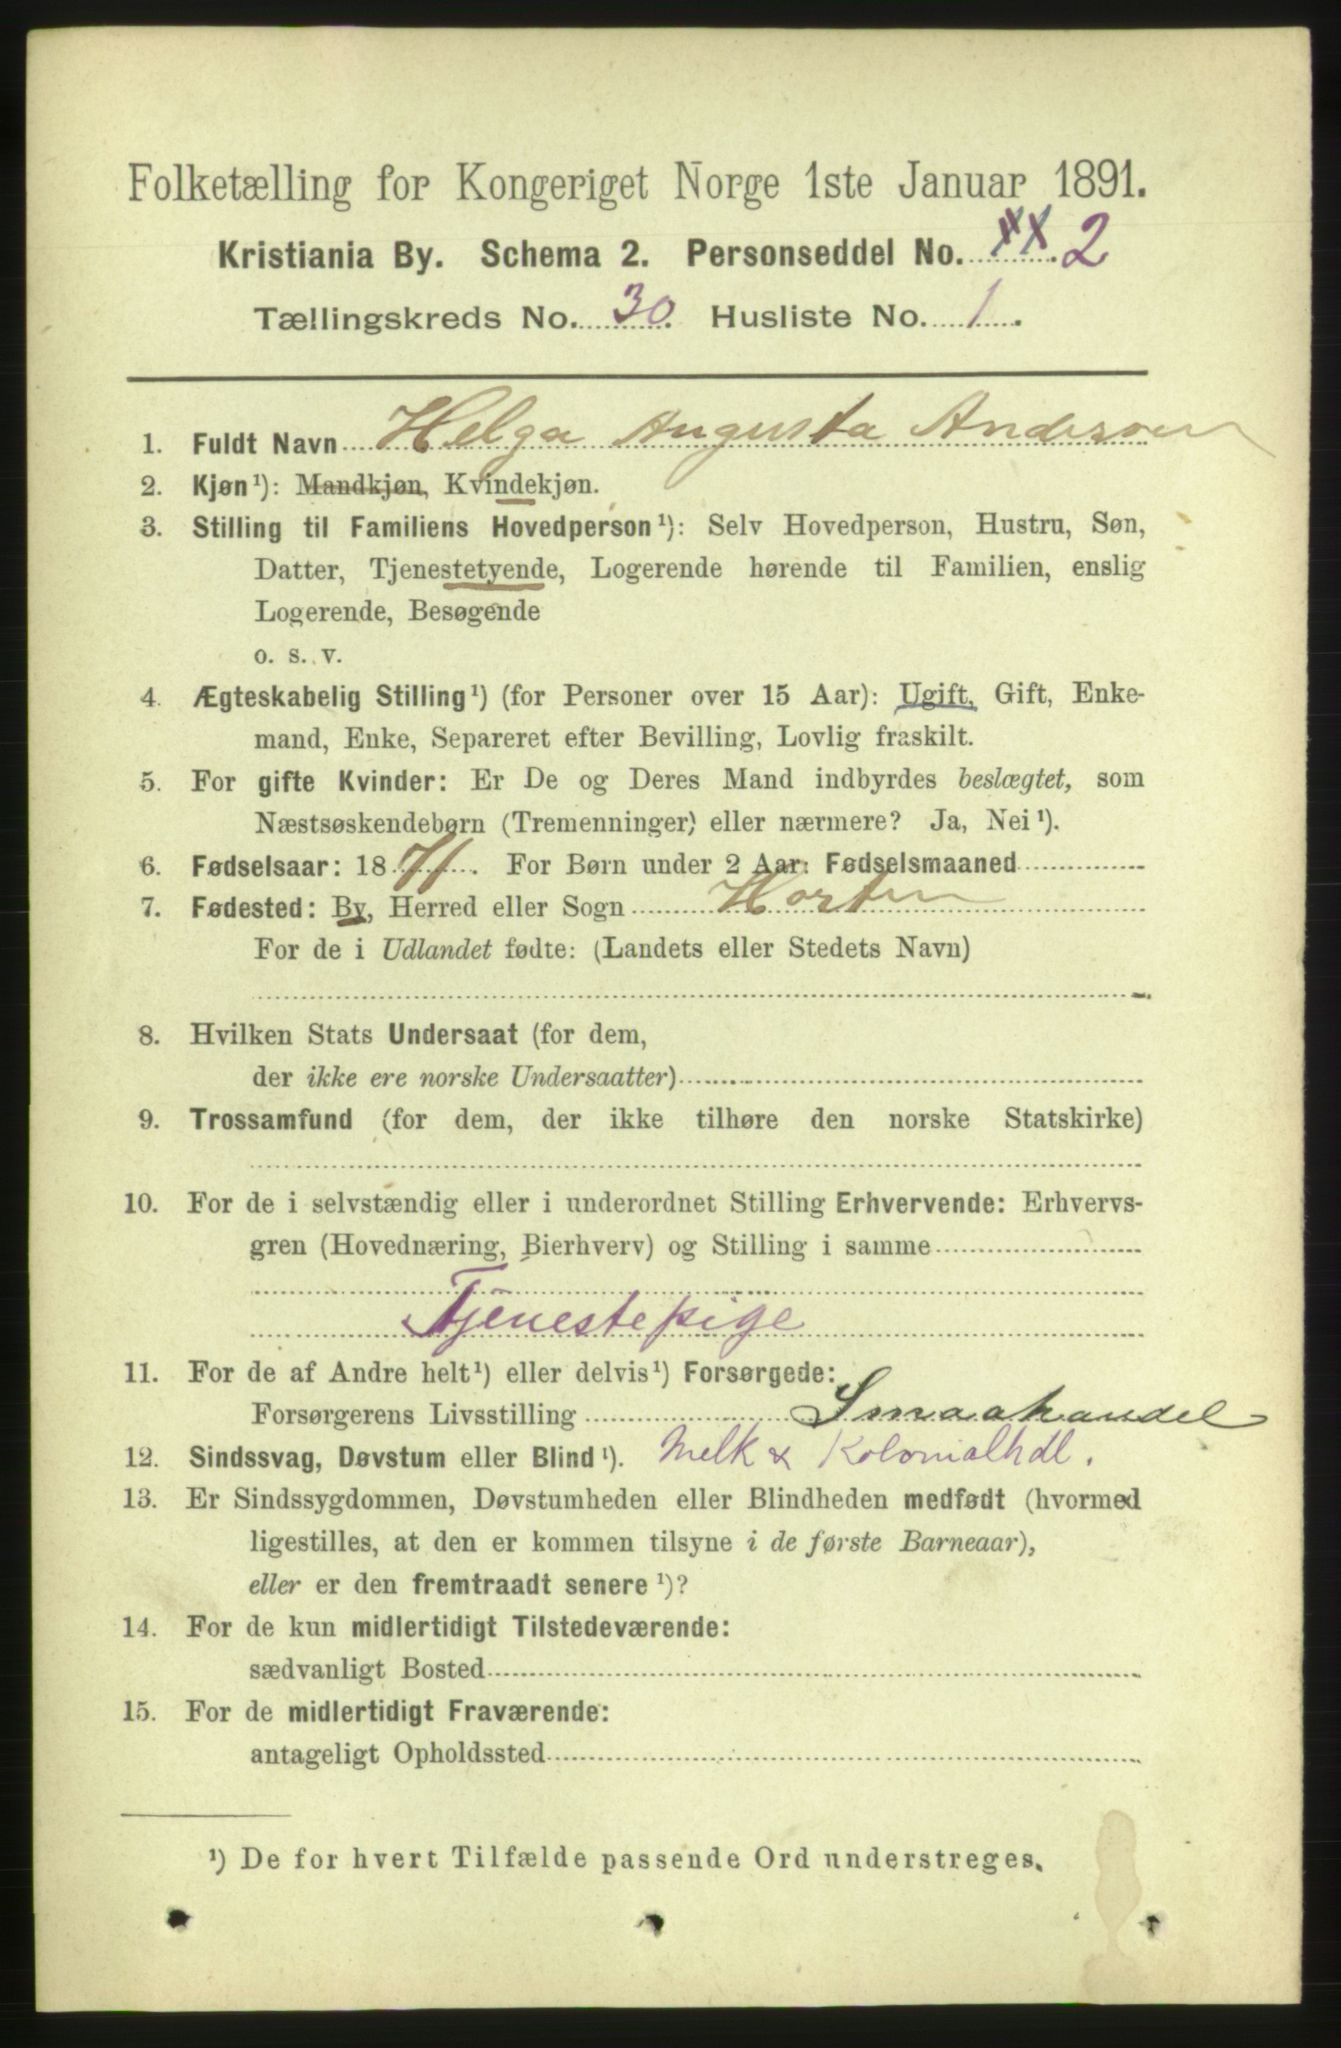 Folketælling for Kongeriget Norge 1ste Januar 1891.
Kristiania By. Schema 2. Personseddel No. XX 2
Tællingskreds No. 30. Husliste No. 1.
1. Fuldt Navn Helga Augusta Andersen
2. Kjøn¹): Mandkjøn, Kvindekjøn.
3. Stilling til Familiens Hovedperson¹): Selv Hovedperson, Hustru, Søn,
Datter, Tjenestetyende, Logerende hørende til Familien, enslig
Logerende, Besøgende
o. s. v.
4. Ægteskabelig Stilling¹) (for Personer over 15 Aar): Ugift, Gift, Enke-
mand, Enke, Separeret efter Bevilling, Lovlig fraskilt.
5. For gifte Kvinder: Er De og Deres Mand indbyrdes beslægtet, som
Næstsøskendebørn (Tremenninger) eller nærmere? Ja, Nei¹).
6. Fødselsaar: 1871. For Børn under 2 Aar: Fødselsmaaned
7. Fødested: By, Herred eller Sogn Horten
For de i Udlandet fødte: (Landets eller Stedets Navn)
8. Hvilken Stats Undersaat (for dem,
der ikke ere norske Undersaatter)
9. Trossamfund (for dem, der ikke tilhøre den norske Statskirke)
10. For de i selvstændig eller i underordnet Stilling Erhvervende: Erhvervs-
gren (Hovednæring, Bierhverv) og Stilling i samme
Tjenestepige
11. For de af Andre helt¹) eller delvis¹) Forsørgede:
Forsørgerens Livsstilling Smaahandel
12. Sindssvag, Døvstum eller Blind¹). Melk & Kolonialhdl.
13. Er Sindssygdommen, Døvstumheden eller Blindheden medfødt (hvormed
ligestilles, at den er kommen tilsyne i de første Barneaar),
eller er den fremtraadt senere¹)?
14. For de kun midlertidigt Tilstedeværende:
sædvanligt Bosted
15. For de midlertidigt Fraværende:
antageligt Opholdssted
¹) De for hvert Tilfælde passende Ord understreges.